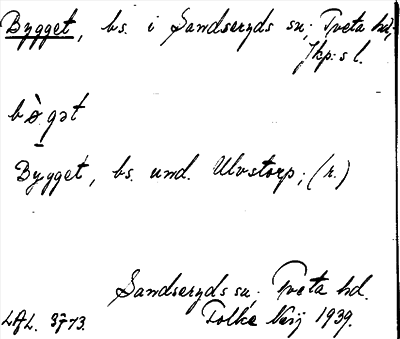 Bygget, bs. i Sandseryds sn; Tveta hd,
Jkp:s l.
bø̀gət
Bygget, bs. und. Ulvstorp; (r.)
Sandseryds sn; Tveta hd.
LAL. 3773. Folke 1939.